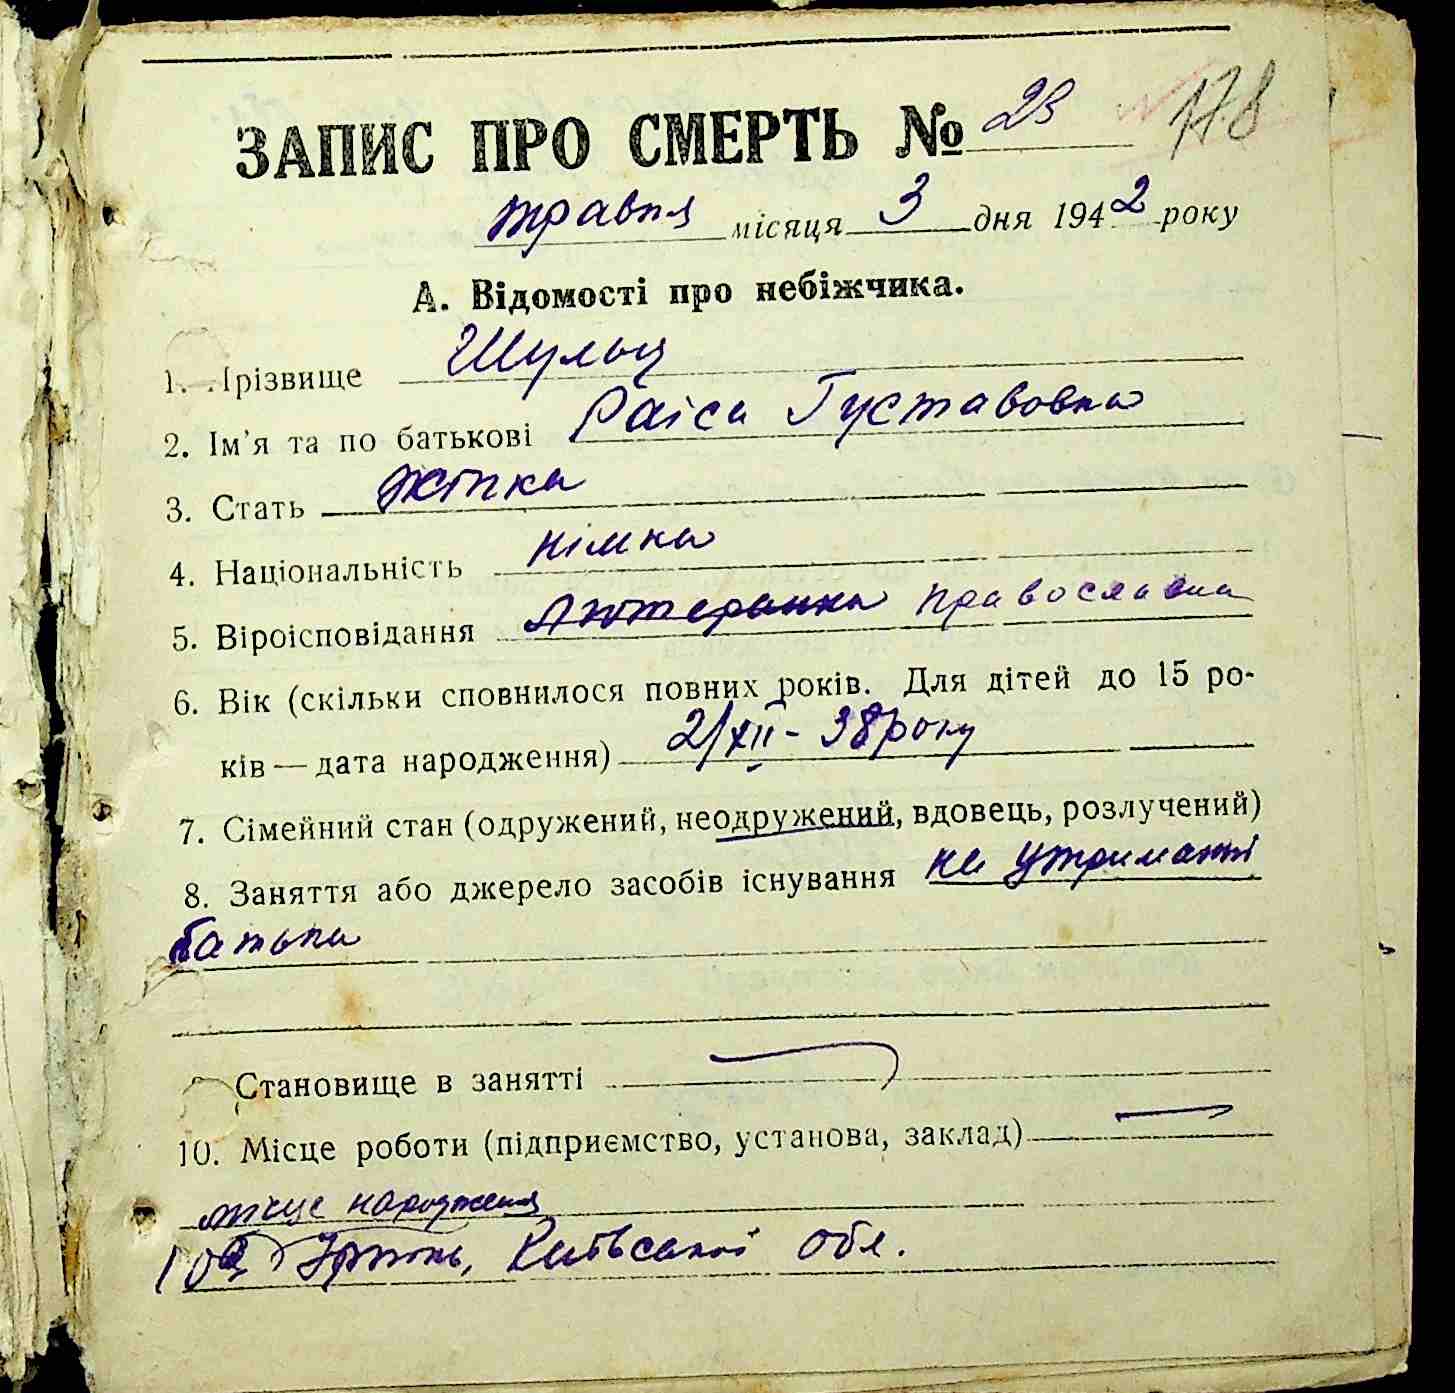 ЗАПИС ПРО СМЕРТЬ № 23 178
травня місяця 3 дня 1942 року
А. Відомості про небіжчика.
1. Прізвище Шульц
2. Ім'я та по батькові Раїса Густавовна
3. Стать жінка
4. Національність німка
5. Віроісповідання лютеранка православна
6. Вік (скільки сповнилося повних років. Для дітей до 15 ро-
ків — дата народження) 2/XII - 38 року
7. Сімейний стан (одружений, неодружений, вдовець, розлучений)
8. Заняття або джерело засобів існування на утриманні
батька
Становище в занятті
10. Місце роботи (підприємство, установа, заклад)
місце народження
Ірпінь, Київської обл.